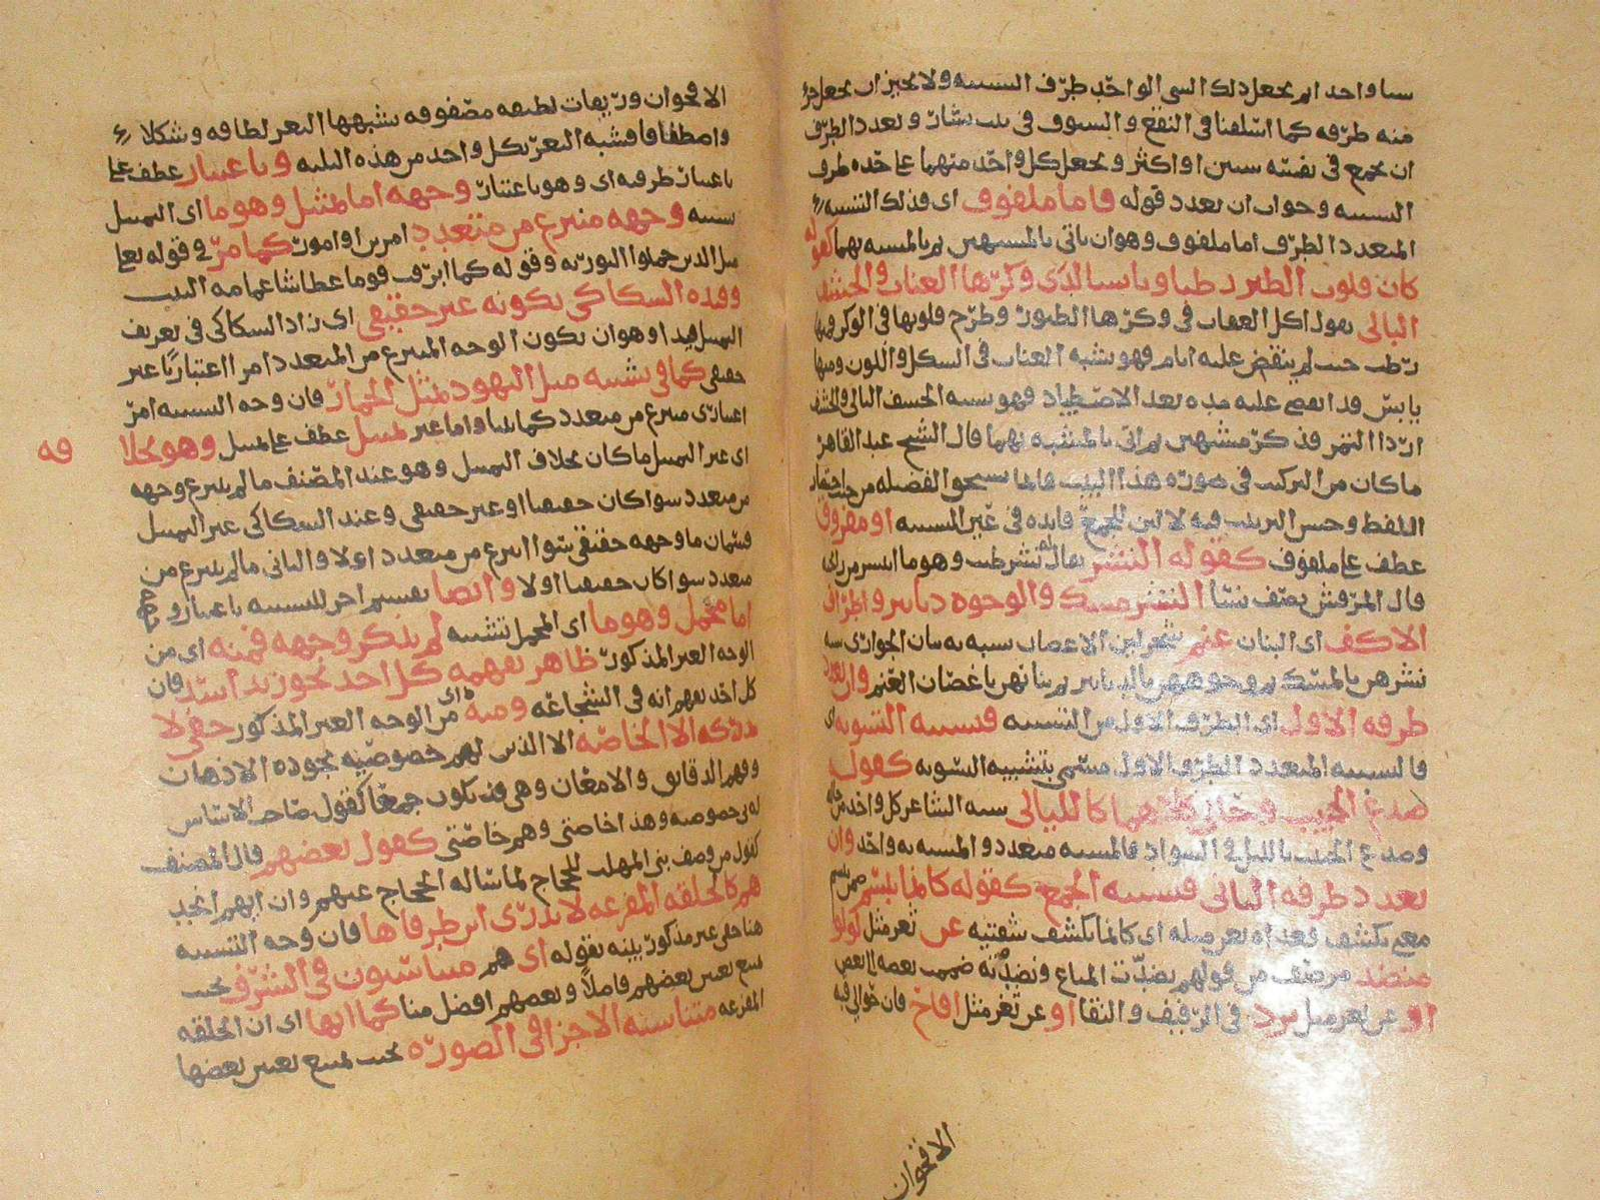 شيا واحد ام يجعل ذلك الشي الواحد طرف التشبيه ولا يخير ان يجعل جزء
منه طرفه كما اسلفنا في النقع والسيوف في بيت بشار وتعدد الطرف
ان يجمع في نفسه شيين او اكثر ويجعل كل واحد منهما على حده طرف
التشبيه وجواب ان تعدد قوله فاما ملفوف اي فذلك التشبيه
المتعدد الطرف اما ملفوف وهو ان ياتي بالمشبهين ثم بالمشبه بهما كقوله
كان قلوب الطير رطبا ويابسا لدى وكرها العناب والحشف
البالي يقول اكل العقاب في وكرها الطيور وطرح قلوبها في الوكر ومنها
رطب حيث لم ينقض عليه ايام فهو يشبه العناب في الشكل واللون ومنها
يابس قد انقضى عليه مده بعد الاصطياد فهو يشبه الحشف البالي والحشف
اردا التمر فذكر مشبهين ثم اتى بالمشبه بهما قال الشيخ عبد القاهر
ما كان من التركيب في صوره هذا البيت فانما يستحق الفضيله من حيث اختصار
اللفظ وحسن الترتيب فيه لا لان للجمع فايده في عين التشبيه او مفروق
عطف على ملفوف كقوله النشر يقال له نشر طيب وهو ما انتشر من راي
قال المرقش يصف نشا النشر مسك والوجوه دنانير واطراف
الاكف اي البنان عنم شجر لين الاغصان يشبه به بنان الجواري شبه
نشرهن بالمسك ثم وجوههن بالدنانير ثم بنانهن باغصان العنم وان تعدد
طرفه الاول اي الطرف الاول من التشبيه فتشبيه التسويه اي
فالتشبيه المتعدد الطرف الاول مسمى بتشبيه التسويه كقول
صدغ الحبيب وحالي كلاهما كالليالي شبه الشاعر كل واحد من حاله
وصدغ الحبيب بالليل في السواد فالمشبه متعدد والمشبه به واحد وان
تعدد طرفه الثاني فتشبيه الجمع كقوله كانما يبتسم ضمن يبتسم
معنى يكشف فعداه بعن صله اي كانما يكشف شفتيه عن ثغر مثل لولو
منضد من صنف من قولهم نضدت المتاع ونضدته ضممت بعضه الى بعض
او عن ثغر مثل برد في الرفيف والنقا او عن ثغر مثل اقاح فان حوالي فيه
الاقحوان
الاقحوان وريقات لطيفه مصفوفه يشبهها الثغر لطافه وشكلا
واصطفافا فشبه الثغر بكل واحد من هذه الثلثه وباعتبار عطف على
باعتبار طرفيه اي وهو باعتبار وجهه اما تمثيل وهو ما اي التمثيل
تشبيه وجهه منتزع من متعدد امرين او امور كما مر في قوله تعالى
مثل الذين حملوا التوريه وقوله كما ابرقت قوما عطاشا غمامه البيت
وقيده السكاكي بكونه غير حقيقي اي زاد السكاكي في تعريف
التمثيل قيدا وهو ان يكون الوجه المنتزع من المتعدد امرا اعتباريا غير
حقيقي كما في تشبيه مثل اليهود بمثل الحمار فان وجه التشبيه امر
اعتباري منتزع من متعدد كما بينا واما غير تمثيل عطف على تمثيل وهو بخلا
فه
اي غير التمثيل ما كان بخلاف التمثيل وهو عند المصنف ما لم ينتزع وجهه
من متعدد سوا كان حقيقيا او غير حقيقي وعند السكاكي غير التمثيل
قسمان ما وجهه حقيقي سوا انتزع من متعدد او لا والثاني ما لم ينتزع من
متعدد سوا كان حقيقيا او لا وايضا تقسيم اخر للتشبيه باعتبار وجهه
اما مجمل وهو ما اي المجمل تشبيه لم يذكر وجهه فمنه اي من
الوجه الغير المذكور ظاهر يفهمه كل احد نحو زيد اسد فان
كل احد يفهم انه في الشجاعه ومنه اي من الوجه الغير المذكور خفي لا
يدركه الا الخاصه الا الذين لهم خصوصيه بجوده الاذهان
وفهم الدقايق والامعان وهي قد تكون جمعا كقول صاحب الاساس
له بي خصوصيه وهذا خاصتي وهم خاصتي كقول بعضهم قال المصنف
كقول من وصف بني المهلب للحجاج لما ساله الحجاج عنهم وان ايهم انجد
هم كالحلقه المفرغه لا يدرى اين طرفاها فان وجه التشبيه
هنا خفي غير مذكور بينه بقوله اي هم متناسبون في الشرف بحيث
يمتنع تعيين بعضهم فاضلا وبعضهم افضل منا كما انها اي ان الحلقه
المفرغه متناسبه الاجزا في الصوره بحيث يمتنع تعيين بعضها